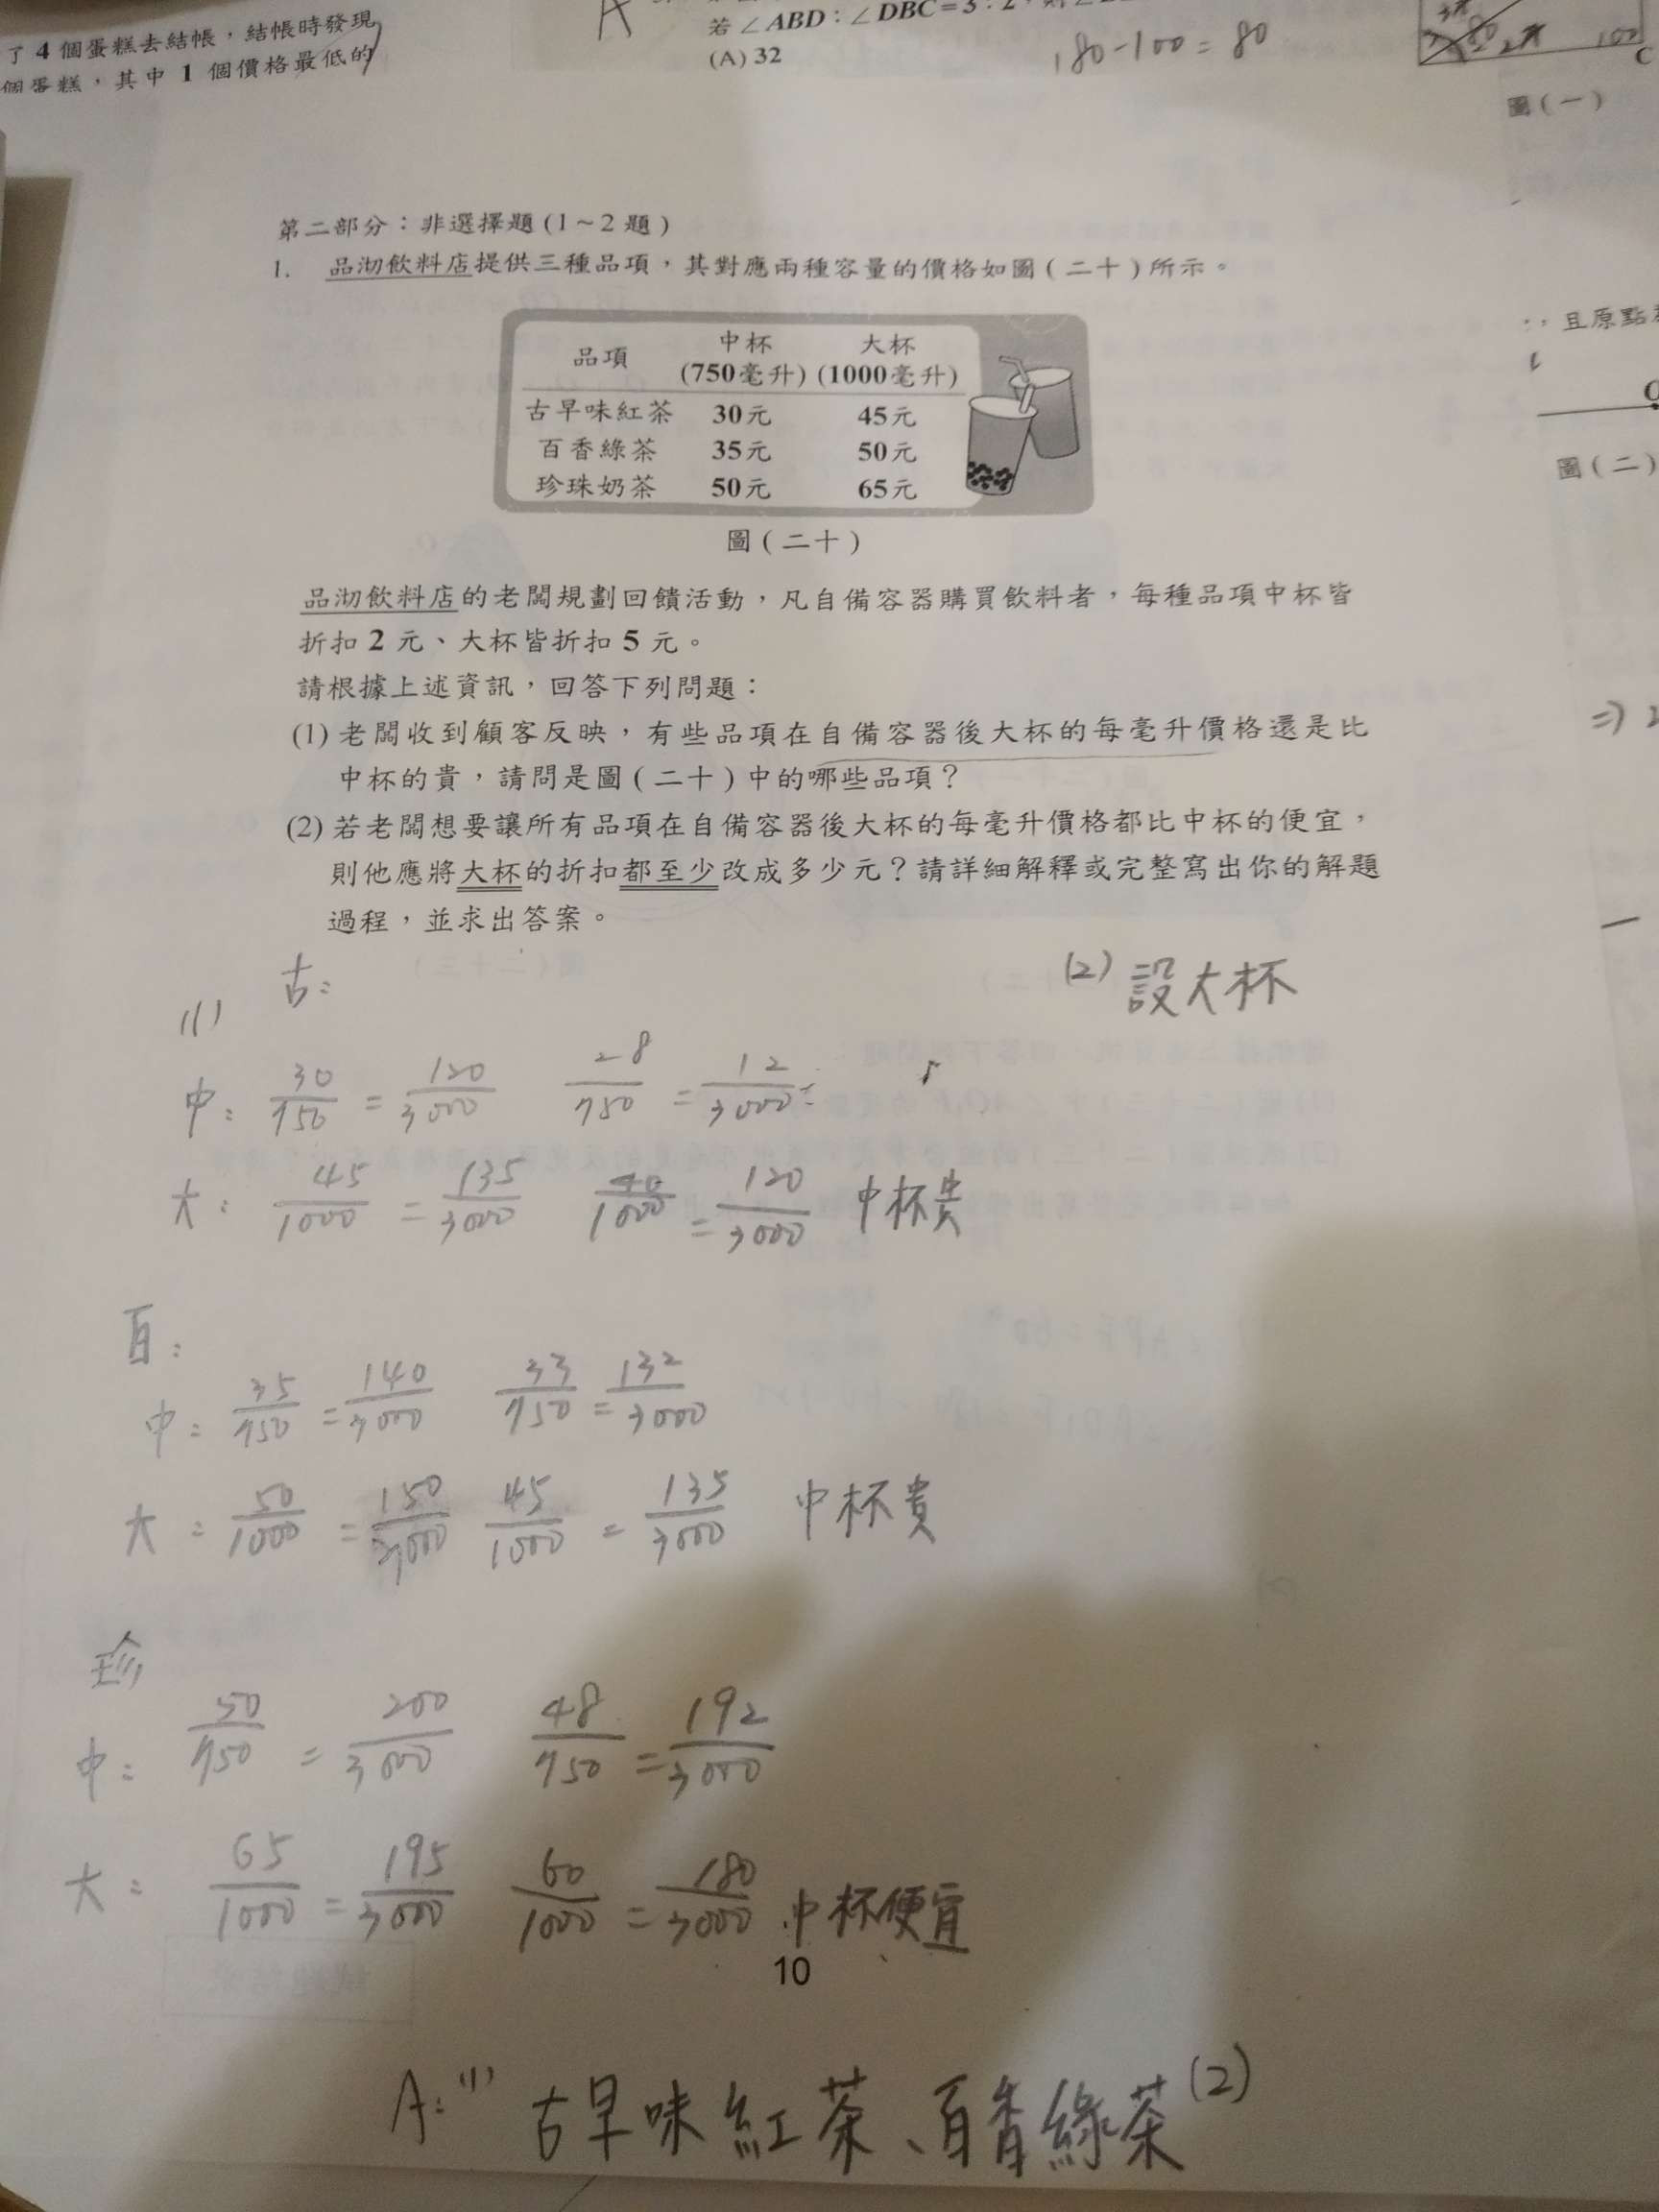 了 4 個蛋糕去結帳，結帳時發現
個蛋糕，其中 1 個價格最低的
A
若∠ABD：∠DBC=3：2，
(A) 32
180-100=80
3x
2x
100
C
圖(一)
第二部分：非選擇題(1～2 題)
1. 品沏飲料店提供三種品項，其對應兩種容量的價格如圖(二十)所示。
品項 中杯 大杯
(750毫升) (1000毫升)
古早味紅茶 30元 45元
百香綠茶 35元 50元
珍珠奶茶 50元 65元
圖(二十)
，且原點
圖(二)
品沏飲料店的老闆規劃回饋活動，凡自備容器購買飲料者，每種品項中杯皆
折扣 2 元、大杯皆折扣 5 元。
請根據上述資訊，回答下列問題：
(1) 老闆收到顧客反映，有些品項在自備容器後大杯的每毫升價格還是比
中杯的貴，請問是圖(二十)中的哪些品項？
(2) 若老闆想要讓所有品項在自備容器後大杯的每毫升價格都比中杯的便宜，
則他應將大杯的折扣都至少改成多少元？請詳細解釋或完整寫出你的解題
過程，並求出答案。
(1) 古：
中：30/750 = 120/3000 28/750 = 12/3000=
大：45/1000 = 135/3000 40/1000 = 120/3000 中杯貴
(2) 設大杯
百：
中：35/750 = 140/3000 33/750 = 132/3000
大：50/1000 = 150/3000 45/1000 = 135/3000 中杯貴
珍
中：50/750 = 200/3000 48/750 = 192/3000
大：65/1000 = 195/3000 60/1000 = 180/3000 中杯便宜
10
A：(1) 古早味紅茶、百香綠茶 (2)